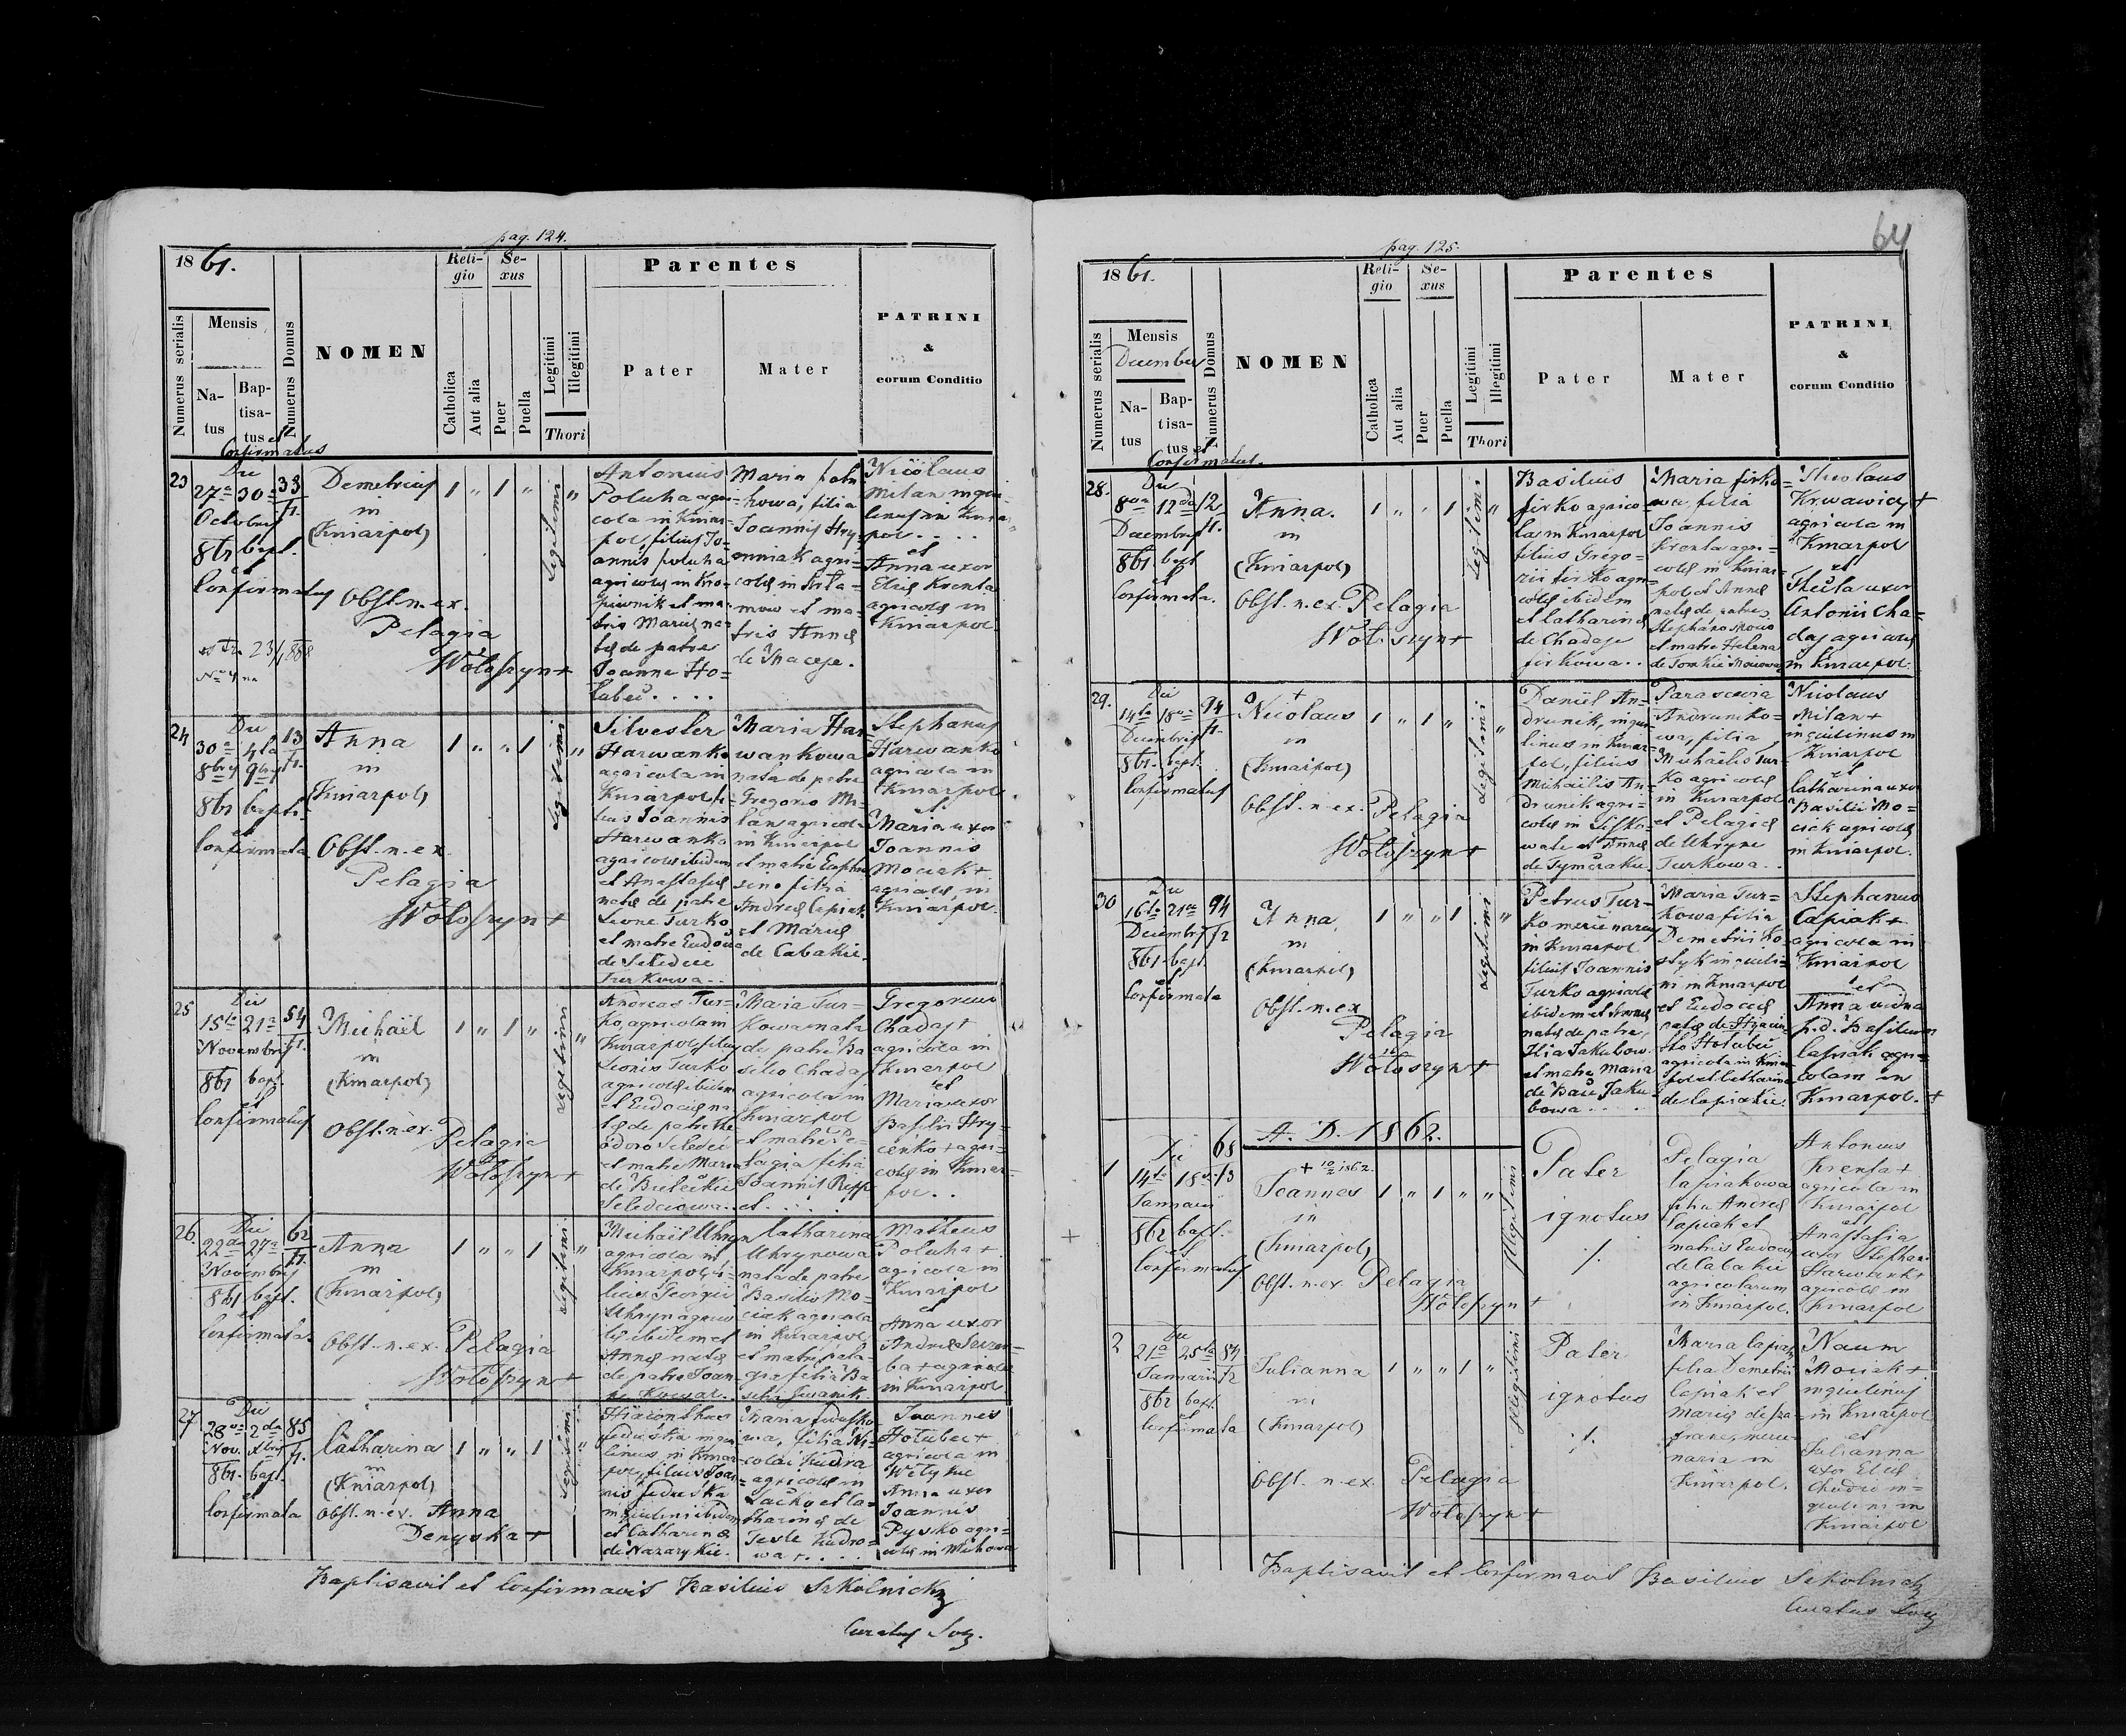 pag. 124.
18 61.
Numerus serialis
Mensis
Na-
tus
Bap-
tisa-
tus et
Confirmatus
Numerus Domus
NOMEN
Reli-
gio
Catholica
Aut alia
Se-
xus
Puer
Puella
Legitimi
Illegitimi
Thori
Parentes
Pater
Mater
PATRINI
&
eorum Conditio
23
Die
27a 30a
Octobris
861 bapt.
et
Confirmatus
33
Demetrius
in
(Kniaźpol)
1 " 1 "
legitimi
"
Obst. n. ex.
Pelagia
Wołoszyn +
Antonius
Poluha agri-
cola in Kniaź-
pol, filius Jo-
annis Poluha
agricolę in Kro-
piwnik et ma-
tris Marię na-
tę de patre
Joanne Ho-
łubci . . . .
Maria
howa, filia
Joannis Hry-
niak agri-
colę in
et ma-
tris Annę
de Macęje.
Nicolaus
Milan inqui-
linus in Kniaź-
pol . . . .
et
Anna uxor
Elię Krenta
agricolę in
Kniaźpol
24
Die
30a 4ta
8bris 9bris
861 bapt.
et
Confirmata
13
Anna
in
(Kniaźpol)
1 " " 1
legitimi
"
Obst. n. ex.
Pelagia
Wołoszyn +
Silvester
Harwanko
agricola in
Kniaźpol, fi-
lius Joannis
Harwanko
agricolę ibidem
et Anastasię
natę de patre
Leone Turko
et matre Eudocia
de Seledcie
Turkowa . .
Maria Har
wankowa
nata de patre
Gregorio Mi-
lan agricola
in Kniaźpol
et matre
filia
Andreę Capiak
et Marię
de Cabakie.
Stephanus
Harwanko
agricola in
Kniaźpol
et
Maria uxor
Joannis
Mociak +
agricolę in
Kniaźpol.
25
Die
15ta 21a
Novembris
861 bapt.
et
Confirmatus
54
Michaël
in
(Kniaźpol)
1 " 1 "
legitimi
"
Obst. n. ex.
Pelagia
Wołoszyn +
Andreas Tur-
ko, agricola in
Kniaźpol, filius
Leonis Turko
agricolę ibidem
et Eudocię na-
tę de patre The
odoro Seledci
et matre Maria
de
Seledciowa
Maria Tur-
kowa nata
de patre Ba
silio Chadaj
agricola in
Kniaźpol
et matre Pe-
lagia filia
Joannis
et . . . .
Gregorius
Chadaj +
agricola in
Kniaźpol
et
Maria uxor
Basilii Hry-
cieńko + agri-
colę in Kniaź-
pol . .
26.
Die
22da 27a
Novembris
861 bapt.
et
Confirmata
62
Anna
in
(Kniaźpol)
1 " " 1
legitimi
"
Obst. n. ex. Pelagia
Wołoszyn +
Michaël Uhryn
agricola in
Kniaźpol, fi-
lius Georgii
Uhryn agrico
lę ibidem et
Annę natę
de patre Joan-
ne Kowal . .
Catharina
Uhrynowa
nata de patre
Basilio Mo-
ciak agricola
in Kniaźpol
et matre Pela-
gia filia Ba
silii Iwanik
Matheus
Poluha +
agricola in
Kniaźpol
et
Anna uxor
Andreę
ba + agricolę
in Kniaźpol
27.
Die
28va 2da
Nov. Xbris
861. bapt.
et
Confirmata
85
Catharina
in
(Kniaźpol)
1 " " 1
legitimi
"
Obst. n. ex. Anna
Denyska +
Feduśka inqui-
linus in Kniaź-
pol, filius Joan-
nis Feduśka
inquilini ibidem
et Catharinę
de Nazarykie.
Maria Feduśko
wa, filia Ni-
colai Kudra
agricolę in
Lacko et Ca-
tharinę de
Tesle Kudro-
wa + . . . .
Joannes
Hołubec +
agricola in
et
Anna uxor
Joannis
Pyśko agri-
colę in Michowa
Baptisavit et Confirmavit Basilius Szkolnicki
Curatus Loci.
pag. 125.
64
18 61.
Numerus serialis
Mensis
December
Na-
tus
Bap-
tisa-
tus et
Confirmatus.
Numerus Domus
NOMEN
Reli-
gio
Catholica
Aut alia
Se-
xus
Puer
Puella
Legitimi
Illegitimi
Thori
Parentes
Pater
Mater
PATRINI
&
eorum Conditio
28.
Die
8va 12da
Decembris
861 bapt
et
Confirmata.
12
Anna.
in
(Kniaźpol)
1 " " 1
legitimi
"
Obst. n. ex. Pelagia
Wołoszyn +
Basilius
Firko agrico-
la in Kniaźpol
filius Grego-
rii Firko agri-
colę ibidem
et Catharinę
de Chadaje
Firkowa . .
Maria Firko
wa, filia
Joannis
Krenta agri-
colę in Kniaź-
pol et Annę
natę de patre
Stephano
et matre Helena
de Tomkie
Nicolaus
Krwawicz +
agricola in
Kniaźpol
et
Thecla uxor
Antonii Cha-
daj agricolę
in Kniaźpol.
29.
Die
14ta 18va
Decembris
861. bapt.
et
Confirmatus
94
+
Nicolaus
in
(Kniaźpol)
1 " 1 "
legitimi
"
Obst. n. ex. Pelagia
Wołoszyn +
Daniel An-
drunik, inqui-
linus in Kniaź-
pol, filius
Michaëlis An-
drunik agri-
colę in Lisko-
wate et Annę
de Tymczakie.
Parascevia
Andruniko-
wa, filia
Michaëlis Tur-
ko agricolę
in Kniaźpol
et Pelagię
de Uhryne
Turkowa . .
Nicolaus
Milan +
inquilinus in
Kniaźpol
et
Catharina uxor
Basilii Mo-
ciak agricolę
in Kniaźpol.
30
Die
16ta 21ma
Decembris
861 bapt.
et
Confirmata
94
Anna
in
(Kniaźpol)
1 " " 1
legitimi
"
Obst. n. ex
Pelagia
Wołoszyn +
Petrus Tur-
ko mercenarius
in Kniaźpol
filius Joannis
Turko agricolę
ibidem et Annę
natę de patre
Ilia Jakubow.
et matre Maria
de Jaku-
bowa . .
Maria Tur-
kowa filia
Demetrii Ko-
styk inquili-
ni in Kniaźpol
et Eudocię
natę de Hyacin-
tho Hołubci
agricola in Kniaź-
pol et Catharina
de Capiakie.
Stephanus
Capiak +
agricola in
Kniaźpol
et
Anna vidua
p. d. Basilium
Capiak agri-
colam in
Kniaźpol. +
A. D. 1862.
1
Die
14ta 18va
Januarii
862 bapt.
et
Confirmatus
68
+ 10/2 1862.
Joannes
in
(Kniaźpol)
1 " 1 " "
illegitimi
Obst. n. ex. Pelagia
Wołoszyn +
Pater
ignotus
./.
Pelagia
Capiakowa
filia Andreę
Capiak et
matris Eudocię
de Cabakie
agricolarum
in Kniaźpol.
Antonius
Krenta +
agricola in
Kniaźpol
et
Anastasia
uxor Stephani
Harwanko +
agricolę in
Kniaźpol
2
Die
21a 25ta
Januarii
862 bapt.
et
Confirmata
84
Julianna
in
(Kniaźpol)
1 " " 1 "
illegitimi
Obst. n. ex. Pelagia
Wołoszyn +
Pater
ignotus
./.
Maria Capiak
filia Demetrii
Capiak et
Marię de
merce-
naria in
Kniaźpol.
Naum
Mociak +
inquilinus
in Kniaźpol
et
Julianna
uxor Elię
in-
quilini in
Kniaźpol
Baptisavit et Confirmavit Basilius Szkolnicki
Curatus Loci